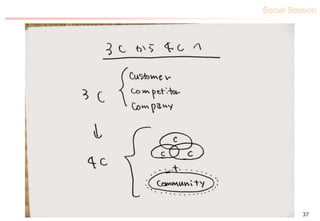 Social Session
3Cから4Cへ
Customer
3C
Competitor
Company
↓
C
C C
4C
+
Community
37